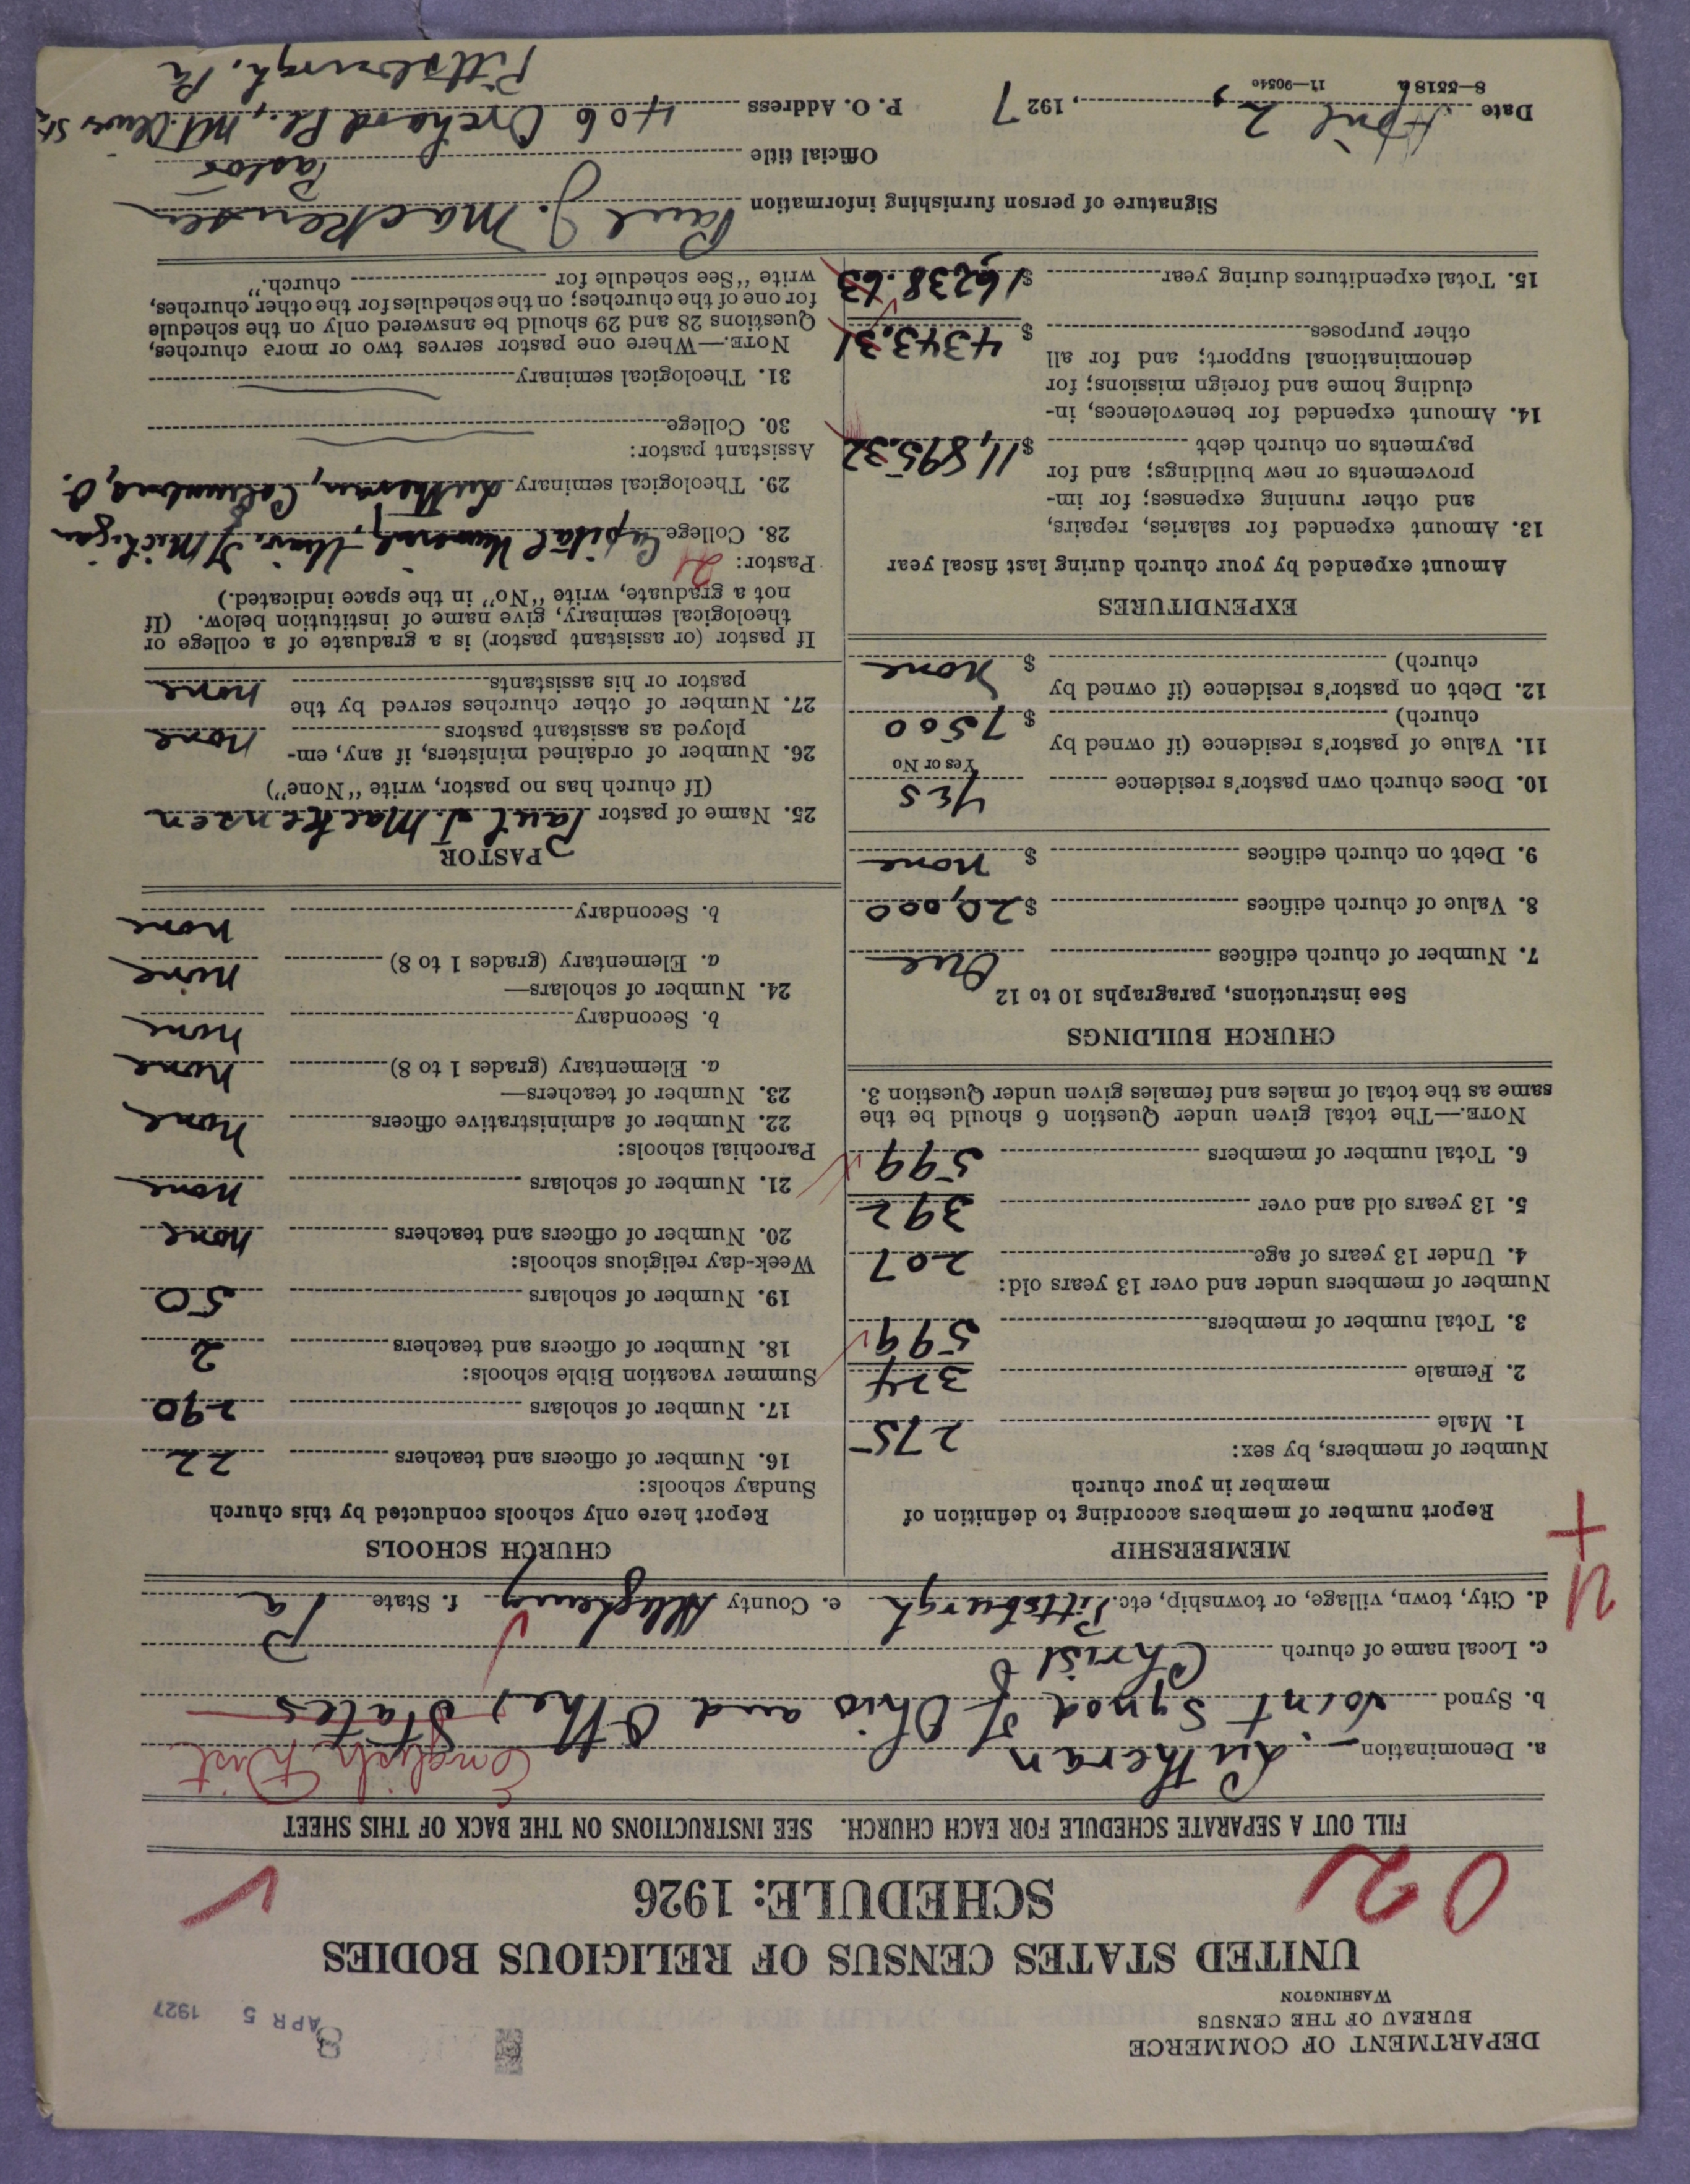 DEPARTMENT OF COMMERCE
BUREAU OF THE CENSUS
WASHINGTON
APR 5 1927
UNITED STATES CENSUS OF RELIGIOUS BODIES
SCHEDULE: 1926
FILL OUT A SEPARATE SCHEDULE FOR EACH CHURCH. SEE INSTRUCTIONS ON THE BACK OF THIS SHEET
a. Denomination Lutheran English Dist
b. Synod Joint Synod of Ohio and Other States
c. Local name of church Christ
d. City, town, village, or township, etc. Pittsburgh e. County Allegheny f. State Pa
MEMBERSHIP
Report number of members according to definition of
member in your church
Number of members, by sex:
1. Male 275
2. Female 324
3. Total number of members 599
Number of members under and over 13 years old:
4. Under 13 years of age 207
5. 13 years old and over 392
6. Total number of members 599
NOTE.—The total given under Question 6 should be the
same as the total of males and females given under Question 3.
CHURCH BUILDINGS
See instructions, paragraphs 10 to 12
7. Number of church edifices One
8. Value of church edifices $20,000
9. Debt on church edifices $ none
10. Does church own pastor's residence YES
Yes or No
11. Value of pastor's residence (if owned by
church) $7500
12. Debt on pastor's residence (if owned by
church) $ none
EXPENDITURES
Amount expended by your church during last fiscal year
13. Amount expended for salaries, repairs,
and other running expenses; for im-
provements or new buildings; and for
payments on church debt $11,895.32
14. Amount expended for benevolences, in-
cluding home and foreign missions; for
denominational support; and for all
other purposes $4343.31
15. Total expenditures during year $16238.63
CHURCH SCHOOLS
Report here only schools conducted by this church
Sunday schools:
16. Number of officers and teachers 22
17. Number of scholars 290
Summer vacation Bible schools:
18. Number of officers and teachers 2
19. Number of scholars 50
Week-day religious schools:
20. Number of officers and teachers none
21. Number of scholars none
Parochial schools:
22. Number of administrative officers none
23. Number of teachers—
a. Elementary (grades 1 to 8) none
b. Secondary none
24. Number of scholars—
a. Elementary (grades 1 to 8) none
b. Secondary none
PASTOR
25. Name of pastor Paul J. Mackensen
(If church has no pastor, write "None")
26. Number of ordained ministers, if any, em-
ployed as assistant pastors none
27. Number of other churches served by the
pastor or his assistants none
If pastor (or assistant pastor) is a graduate of a college or
theological seminary, give name of institution below. (If
not a graduate, write "No" in the space indicated.)
Pastor: 21
28. College Capital University, Univ. of Michigan
29. Theological seminary Lutheran, Columbus, O.
Assistant pastor:
30. College
31. Theological seminary
NOTE.—Where one pastor serves two or more churches,
Questions 28 and 29 should be answered only on the schedule
for one of the churches; on the schedules for the other churches,
write "See schedule for church."
Signature of person furnishing information Paul J. Mackensen
Official title Pastor
Date April 2, 1927 P. O. Address 406 Orchard Pl., Mt. Oliver Sta.
Pittsburgh, Pa
8—5518a 11—9054e